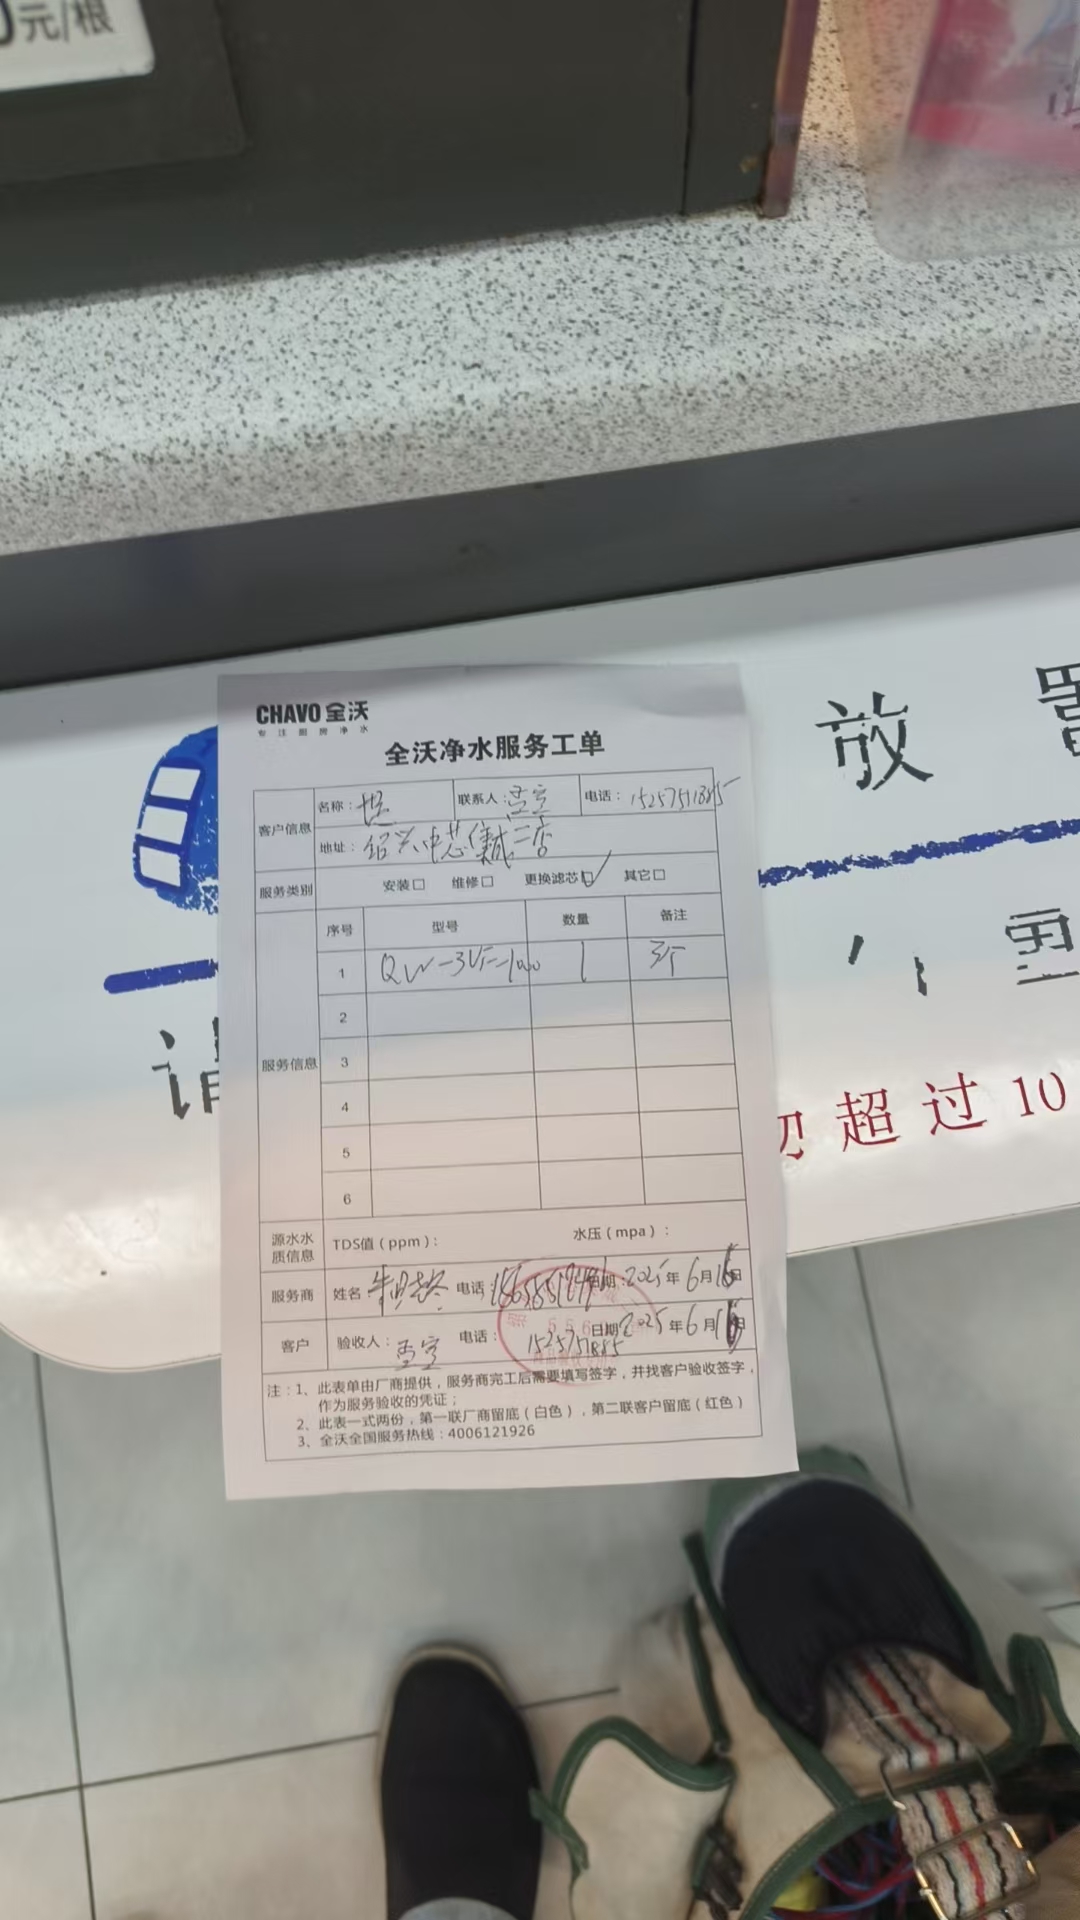 元/根
放 置
请
勿 超 过 10
CHAVO 全沃
专 注 厨 房 净 水
全沃净水服务工单
客户信息 名称: 联系人: 电话: 15257511885
地址: 绍兴中芯集成二店
服务类别 安装□ 维修□ 更换滤芯☑ 其它□
序号 型号 数量 备注
服务信息
1 QW-3UF-1000 1
2
3
4
5
6
源水水质信息 TDS值(ppm): 水压(mpa):
服务商 姓名 电话: 日期: 2025年6月16日
客户 验收人: 电话: 15257511885 日期 2025年6月16日
注:1、此表单由厂商提供,服务商完工后需要填写签字,并找客户验收签字,
作为服务验收的凭证;
2、此表一式两份,第一联厂商留底(白色),第二联客户留底(红色)
3、全沃全国服务热线:4006121926